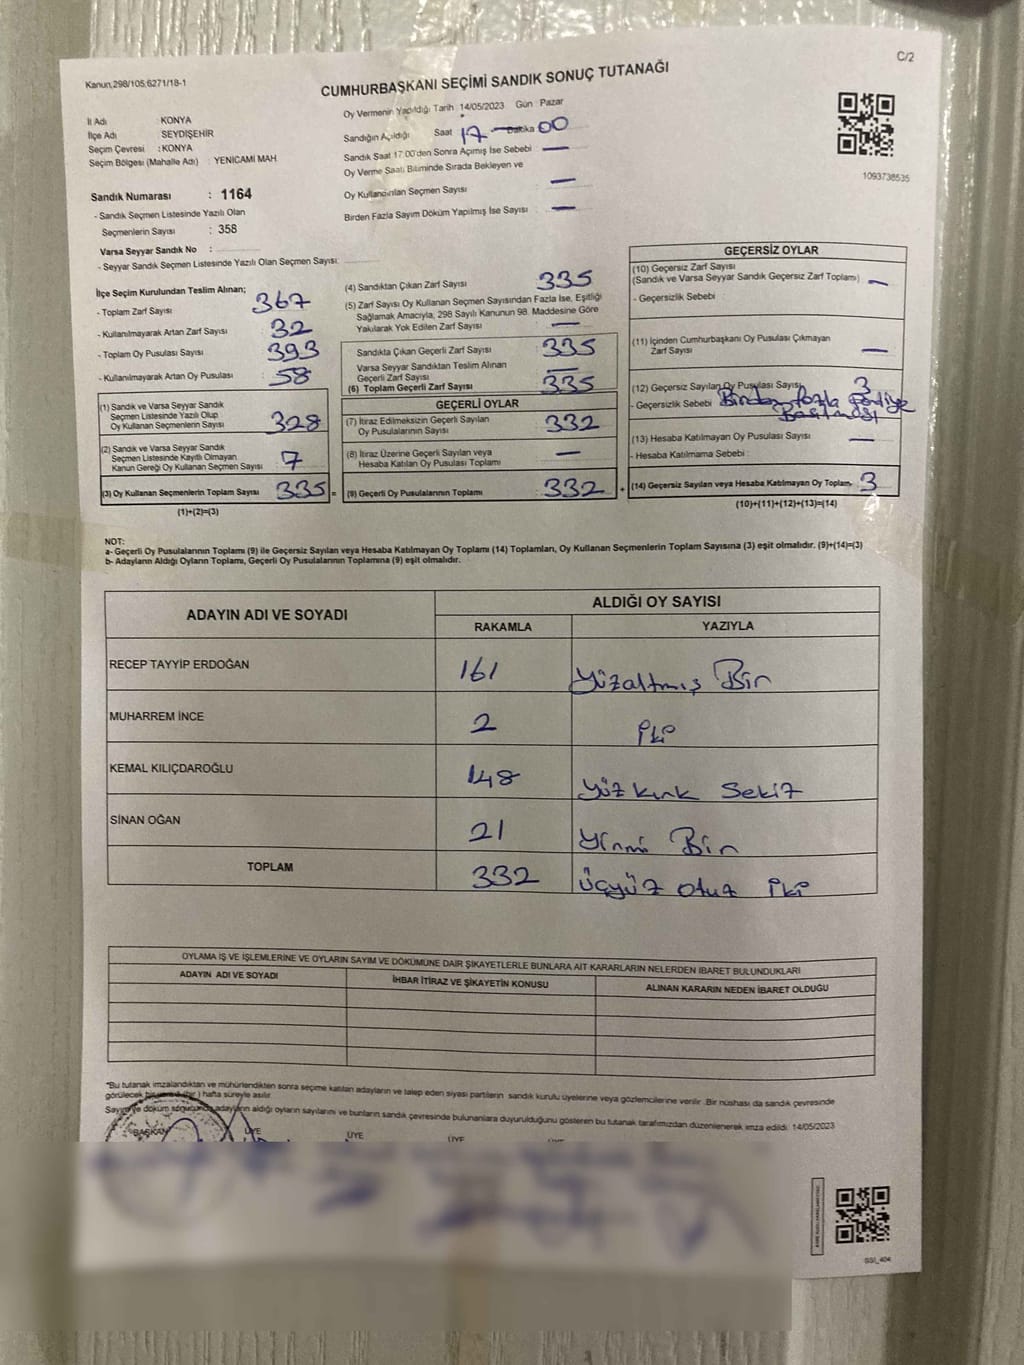 C/2
Kanun,298/105;6271/18-1
CUMHURBAŞKANI SEÇİMİ SANDIK SONUÇ TUTANAĞI
İl Adı : KONYA
İlçe Adı : SEYDİŞEHİR
Seçim Çevresi : KONYA
Seçim Bölgesi (Mahalle Adı) : YENICAMI MAH
Sandık Numarası : 1164
- Sandık Seçmen Listesinde Yazılı Olan
Seçmenlerin Sayısı : 358
Varsa Seyyar Sandık No :
- Seyyar Sandık Seçmen Listesinde Yazılı Olan Seçmen Sayısı:
Oy Vermenin Yapıldığı Tarih :14/05/2023 Gün : Pazar
Sandığın Açıldığı Saat 17 Dakika 00
Sandık Saat 17:00'den Sonra Açımış İse Sebebi : —
Oy Verme Saati Bitiminde Sırada Bekleyen ve
Oy Kullandırılan Seçmen Sayısı : —
Birden Fazla Sayım Döküm Yapılmış İse Sayısı : —
1093738535
İlçe Seçim Kurulundan Teslim Alınan;
- Toplam Zarf Sayısı : 367
- Kullanılmayarak Artan Zarf Sayısı : 32
- Toplam Oy Pusulası Sayısı : 393
- Kullanılmayarak Artan Oy Pusulası : 58
(1) Sandık ve Varsa Seyyar Sandık
Seçmen Listesinde Yazılı Olup
Oy Kullanan Seçmenlerin Sayısı : 328
(2) Sandık ve Varsa Seyyar Sandık
Seçmen Listesinde Kayıtlı Olmayan
Kanun Gereği Oy Kullanan Seçmen Sayısı : 7
(3) Oy Kullanan Seçmenlerin Toplam Sayısı : 335 =
(1)+(2)=(3)
(4) Sandıktan Çıkan Zarf Sayısı : 335
(5) Zarf Sayısı Oy Kullanan Seçmen Sayısından Fazla İse, Eşitliği
Sağlamak Amacıyla, 298 Sayılı Kanunun 98. Maddesine Göre
Yakılarak Yok Edilen Zarf Sayısı : —
Sandıkta Çıkan Geçerli Zarf Sayısı : 335
Varsa Seyyar Sandıktan Teslim Alınan
Geçerli Zarf Sayısı : —
(6) Toplam Geçerli Zarf Sayısı : 335
GEÇERLİ OYLAR
(7) İtiraz Edilmeksizin Geçerli Sayılan
Oy Pusulalarının Sayısı : 332
(8) İtiraz Üzerine Geçerli Sayılan veya
Hesaba Katılan Oy Pusulası Toplamı : —
(9) Geçerli Oy Pusulalarının Toplamı : 332 +
GEÇERSİZ OYLAR
(10) Geçersiz Zarf Sayısı
(Sandık ve Varsa Seyyar Sandık Geçersiz Zarf Toplamı) : —
- Geçersizlik Sebebi :
(11) İçinden Cumhurbaşkanı Oy Pusulası Çıkmayan
Zarf Sayısı : —
(12) Geçersiz Sayılan Oy Pusulası Sayısı : 3
- Geçersizlik Sebebi : Birden fazla Partiye
Basılması
(13) Hesaba Katılmayan Oy Pusulası Sayısı : —
- Hesaba Katılmama Sebebi :
(14) Geçersiz Sayılan veya Hesaba Katılmayan Oy Toplam: 3
(10)+(11)+(12)+(13)=(14)
NOT:
a- Geçerli Oy Pusulalarının Toplamı (9) ile Geçersiz Sayılan veya Hesaba Katılmayan Oy Toplamı (14) Toplamları, Oy Kullanan Seçmenlerin Toplam Sayısına (3) eşit olmalıdır. (9)+(14)=(3)
b- Adayların Aldığı Oyların Toplamı, Geçerli Oy Pusulalarının Toplamına (9) eşit olmalıdır.
ADAYIN ADI VE SOYADI ALDIĞI OY SAYISI
RAKAMLA YAZIYLA
RECEP TAYYİP ERDOĞAN 161 Yüzaltmış Bir
MUHARREM İNCE 2 İki
KEMAL KILIÇDAROĞLU 148 Yüz kırk Sekiz
SİNAN OĞAN 21 Yirmi Bir
TOPLAM 332 Üçyüz Otuz İki
OYLAMA İŞ VE İŞLEMLERİNE VE OYLARIN SAYIM VE DÖKÜMÜNE DAİR ŞİKAYETLERLE BUNLARA AİT KARARLARIN NELERDEN İBARET BULUNDUKLARI
ADAYIN ADI VE SOYADI İHBAR İTİRAZ VE ŞİKAYETİN KONUSU ALINAN KARARIN NEDEN İBARET OLDUĞU
*Bu tutanak imzalandıktan ve mühürlendikten sonra seçime katılan adayların ve talep eden siyasi partilerin sandık kurulu üyelerine veya gözlemcilerine verilir .Bir nüshası da sandık çevresinde
görülecek bir yere (bir ) hafta süreyle asılır.
Sayım ve döküm sonucunda adayların aldığı oyların sayılarını ve bunların sandık çevresinde bulunanlara duyurulduğunu gösteren bu tutanak tarafımızdan düzenlenerek imza edildi. 14/05/2023
BAŞKAN ÜYE ÜYE ÜYE
SSI_404